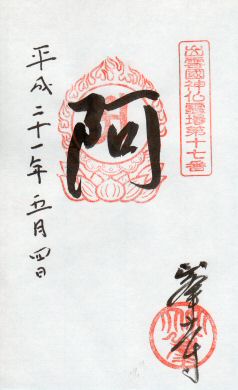 出雲國神仏霊場第十七番
阿
峯寺
平成二十一年五月四日